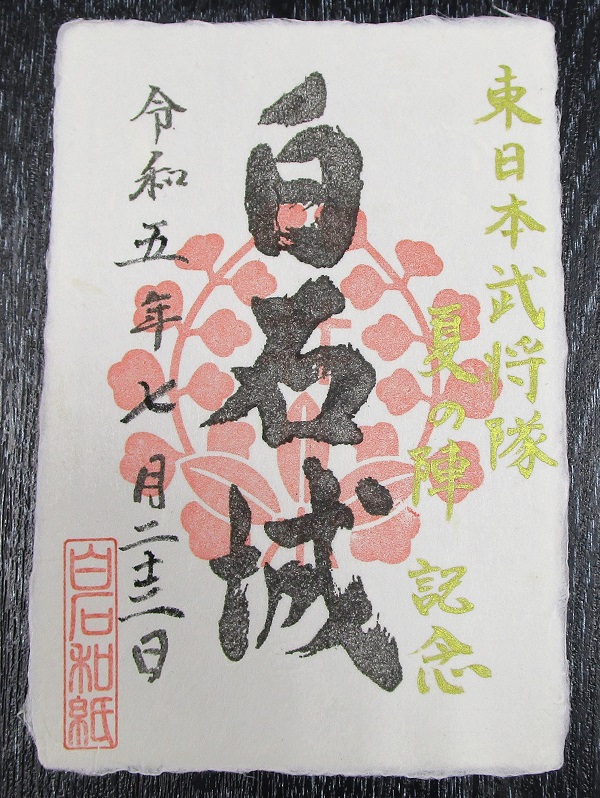 東日本武将隊
夏の陣
記念
白石城
令和五年七月二十三日
白石和紙